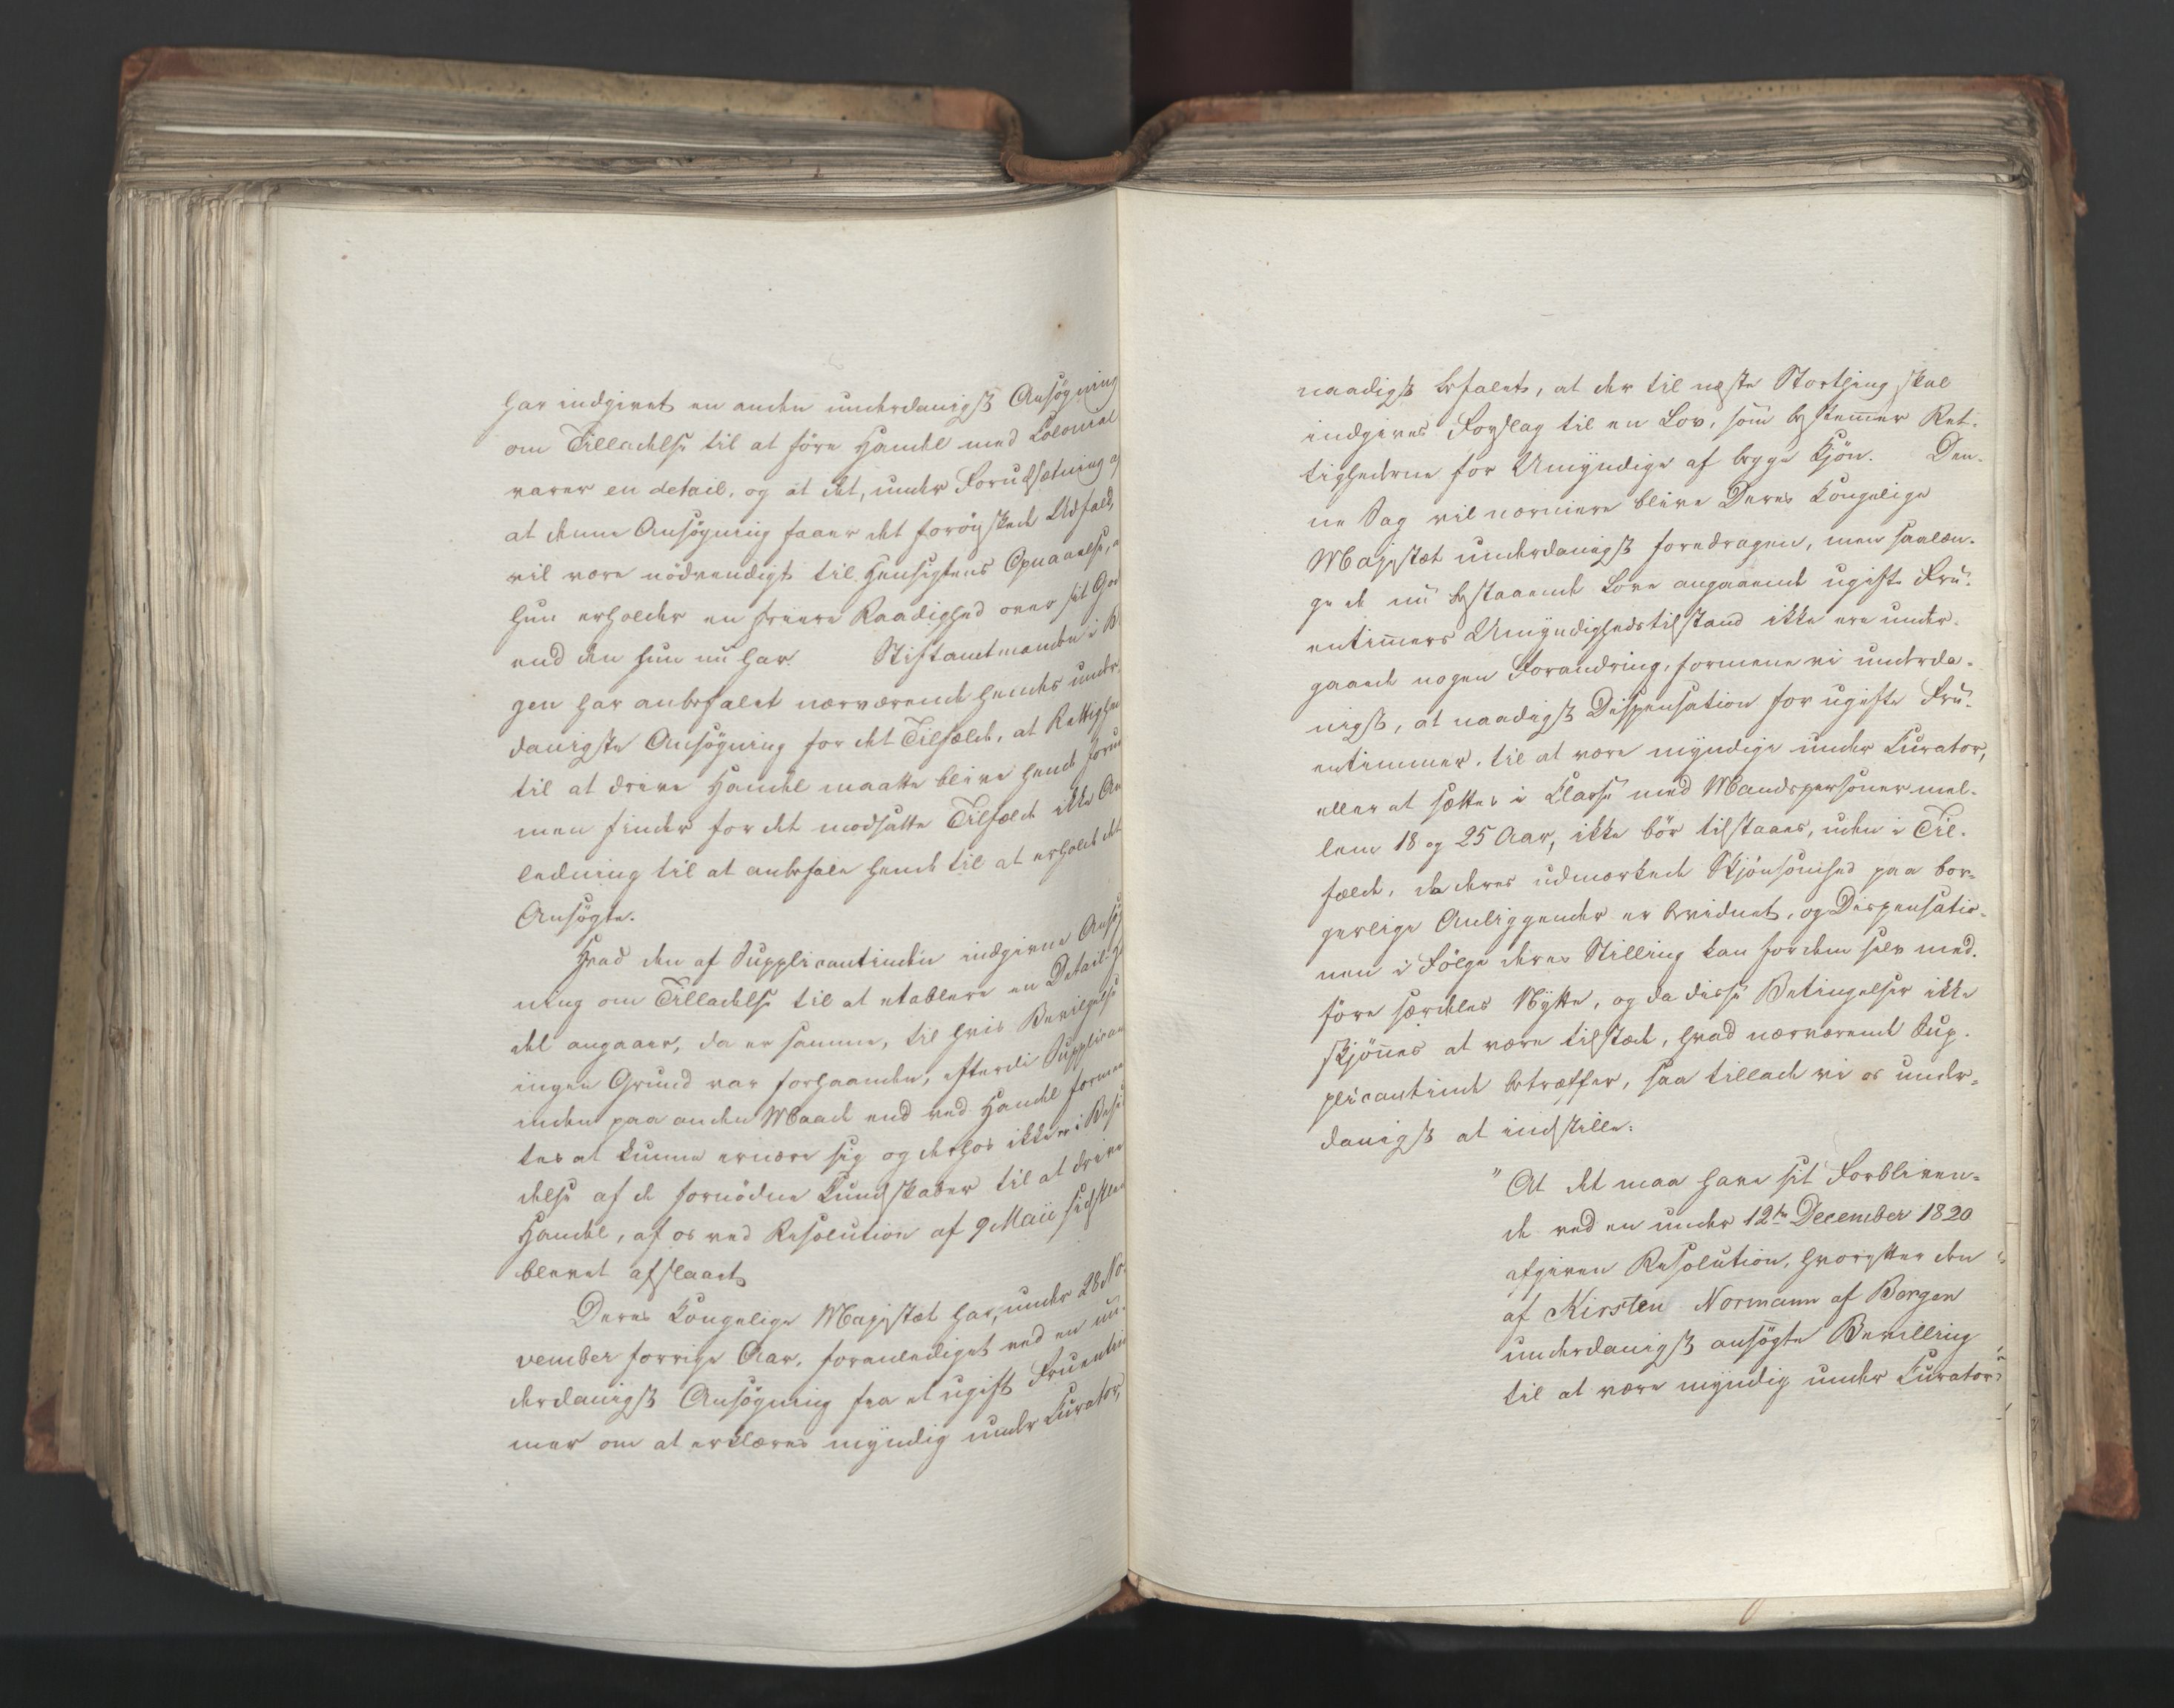 har indgivet en anden underdanigst Ansøgning
om Tilladelse til at føre Handel med Colonial
varer en detail, og at det, under Forudsætning af
at denne Ansøgning faaer det forønskede Udfald,
vil være nødvendigt til Hensigtens Opnaaelse, at
hun erholder en friere Raadighed over sit Gods
end den hun nu har. Stiftamtmanden i B
gen har anbefalet nærværende hendes under
danigste Ansøgning for det Tilfælde, at Rettighed
til at drive Handel maatte blive hende forun
men finder for det modsatte Tilfælde ikke An
ledning til at anbefale hende til at erholde det
Ansøgte.
Hvad den af Supplicantinden indgivne Ansøg
ning om Tilladelse til at etablere en Detailhan
del angaaer, da er samme, til hvis Bevilgelse
ingen Grund var forhaanden, efterdi Supplican
inden paa anden Maade end ved Handel formeen
tes at kunne ernære sig og derhos ikke er i Besid
delse af de fornødne Kundskaber til at drive
Handel, af os ved Resolution af 9 Maii sidstleden
blevet afslaaet.
Deres Kongelige Majestæt har, under 28 No-
vember forrige Aar, foranlediget ved en un-
derdanigst Ansøgning fra et ugift Fruentim
mer om at erklæres myndig under Curator,
naadigst befalet, at der til næste Storthing skal
indgives Forslag til en Lov, som bestemmer Ret-
tighederne for Umyndige af begge Kjøn. Den-
ne Sag vil nærmere blive Deres Kongelige
Majestæt underdanigst foredragen, men saalæn-
ge de nu bestaaende Love angaaende ugifte Fru-
entimmers Umyndighedstilstand ikke ere under-
gaaede nogen Forandring, formene vi underda-
nigst, at naadigst Dispensation for ugifte Fru-
entimmer, til at være myndige under Curator,
eller at sættes i Classe med Mandspersoner mel-
lem 18 og 25 Aar, ikke bør tilstaaes, uden i Til-
fælde, da deres udmærkede Skjønsomhed paa bor-
gerlige Anliggender er bevidnet, og Dispensatio-
nen i Følge deres Stilling kan for dem selv med-
føre særdeles Nytte, og da disse Betingelser ikke
skjønnes at være tilstæde, hvad nærværende Sup-
plicantinde betræffer, saa tillade vi os under-
danigst at indstille:
"At det maa have sit Forbliven-
de ved en under 12te December 1820
afgiven Resolution, hvorefter den
af Kirsten Normann af Bergen
underdanigst ansøgte Bevilling
til at være myndig under Curator